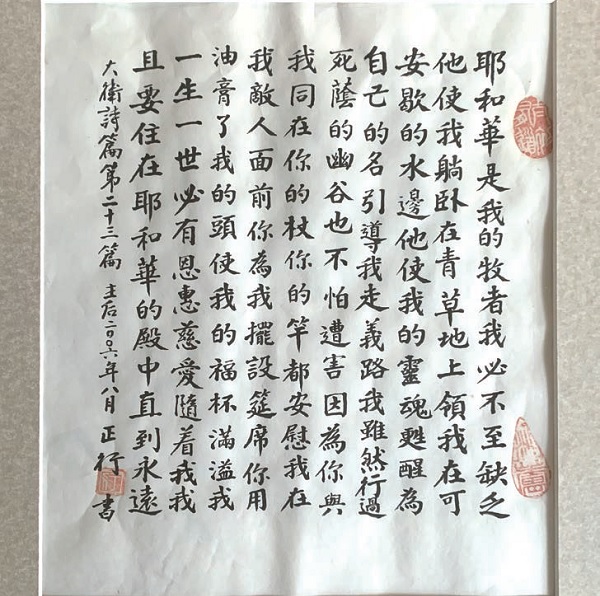 耶和華是我的牧者我必不至缺乏
他使我躺卧在青草地上領我在可
安歇的水邊他使我的靈魂甦醒為
自己的名引導我走義路我雖然行過
死蔭的幽谷也不怕遭害因為你與
我同在你的杖你的竿都安慰我在
我敵人面前你為我擺設筵席你用
油膏了我的頭使我的福杯滿溢我
一生一世必有恩惠慈愛隨着我我
且要住在耶和華的殿中直到永遠
大衛詩篇第二十三篇 主后二〇〇六年八月 正行書